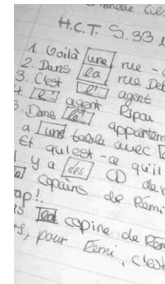 H.C.T. S. 33
1. Voilà une rue -
2. Dans la rue De
3. C'est l' agent
4. l' agent Ripou
5. Dans l' apparten
a une table avec
Et qu'est-ce qu'il
y a des CD de
copains de Rémi
op!
la copine de Ré
, pour Rémi, c'est